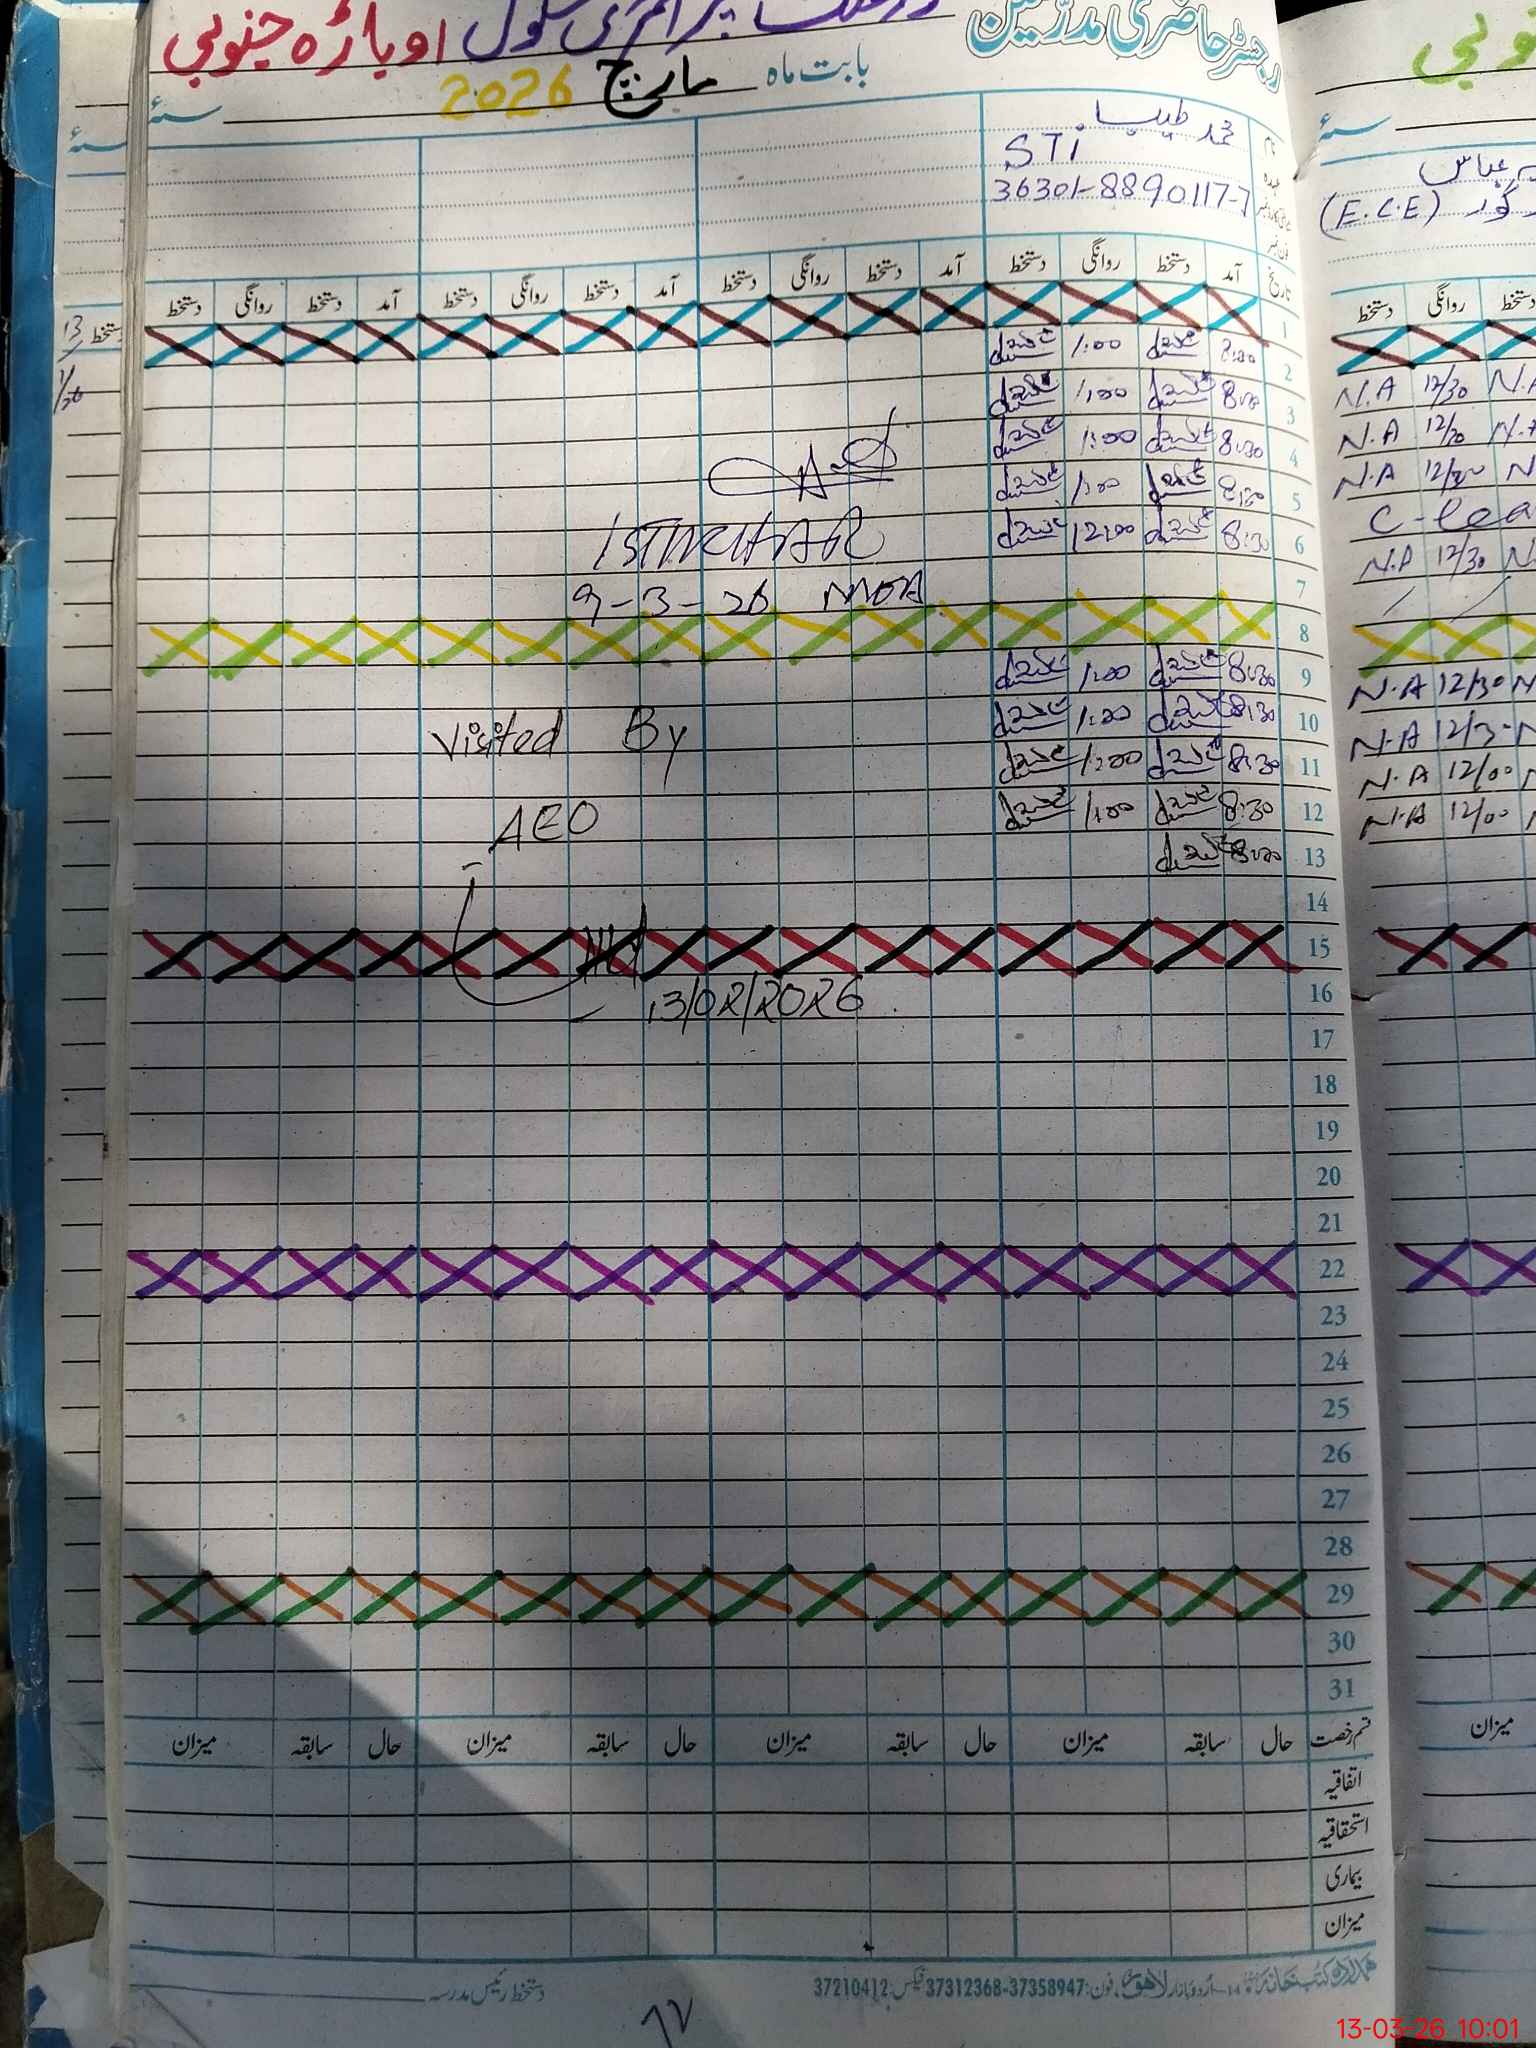 رجسٹر حاضری مدرسین
پرائمری سکول اوباڑہ جنوبی
بابت ماہ مارچ 2026 سنۂ
نام محمد طیب
عہدہ STI
36301-8890117-7
تاریخ آمد دستخط روانگی دستخط آمد دستخط روانگی دستخط آمد دستخط روانگی دستخط آمد دستخط روانگی دستخط
1
2 8:30 1:00
3 8:30 1:00
4 8:30 1:00
5 8:30 1:00
6 8:30 12:00
7
8
9 8:30 1:00
10 8:30 1:00
11 8:30 1:00
12 8:30 1:00
13 8:30
14
15
16
17
18
19
20
21
22
23
24
25
26
27
28
29
30
31
9-3-26 MEA
Visited By
AEO
13/02/2026
قسم رخصت حال سابقہ میزان حال سابقہ میزان حال سابقہ میزان حال سابقہ میزان
اتفاقیہ
استحقاقیہ
بیماری
میزان
ہمدرد کتب خانہ اردو بازار لاہور، فون: 37358947-37312368 فیکس: 37210412
دستخط رئیس مدرسہ
سنۂ
عباس
(E.C.E)
دستخط روانگی دستخط
N.A 12/30 N.A
N.A 12/30 N.A
N.A 12/30 N
N.A 12/30 N
N.A 12/30 N
N.A 12/3
N.A 12/00
N.A 12/00
میزان
سنۂ
دستخط
13
13-03-26 10:01